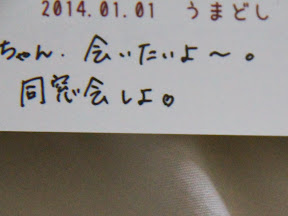 2014.01.01 うまどし
ちゃん. 会いたいよ〜。
同窓会しよ。